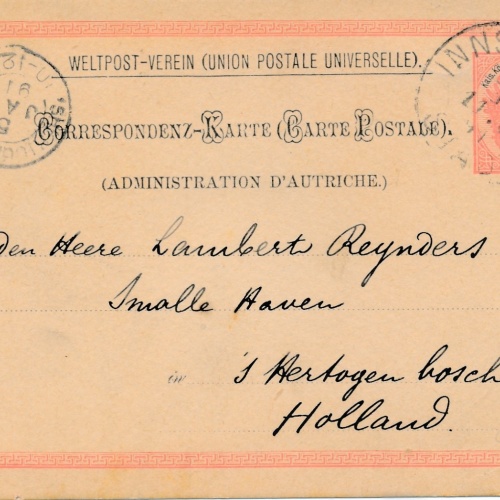 WELTPOST-VEREIN (UNION POSTALE UNIVERSELLE).
INNS
CORRESPONDENZ-KARTE (CARTE POSTALE).
(ADMINISTRATION D'AUTRICHE.)
den Heere Lambert Reynders
Smalle Haven
in 's Hertogenbosch
Holland.